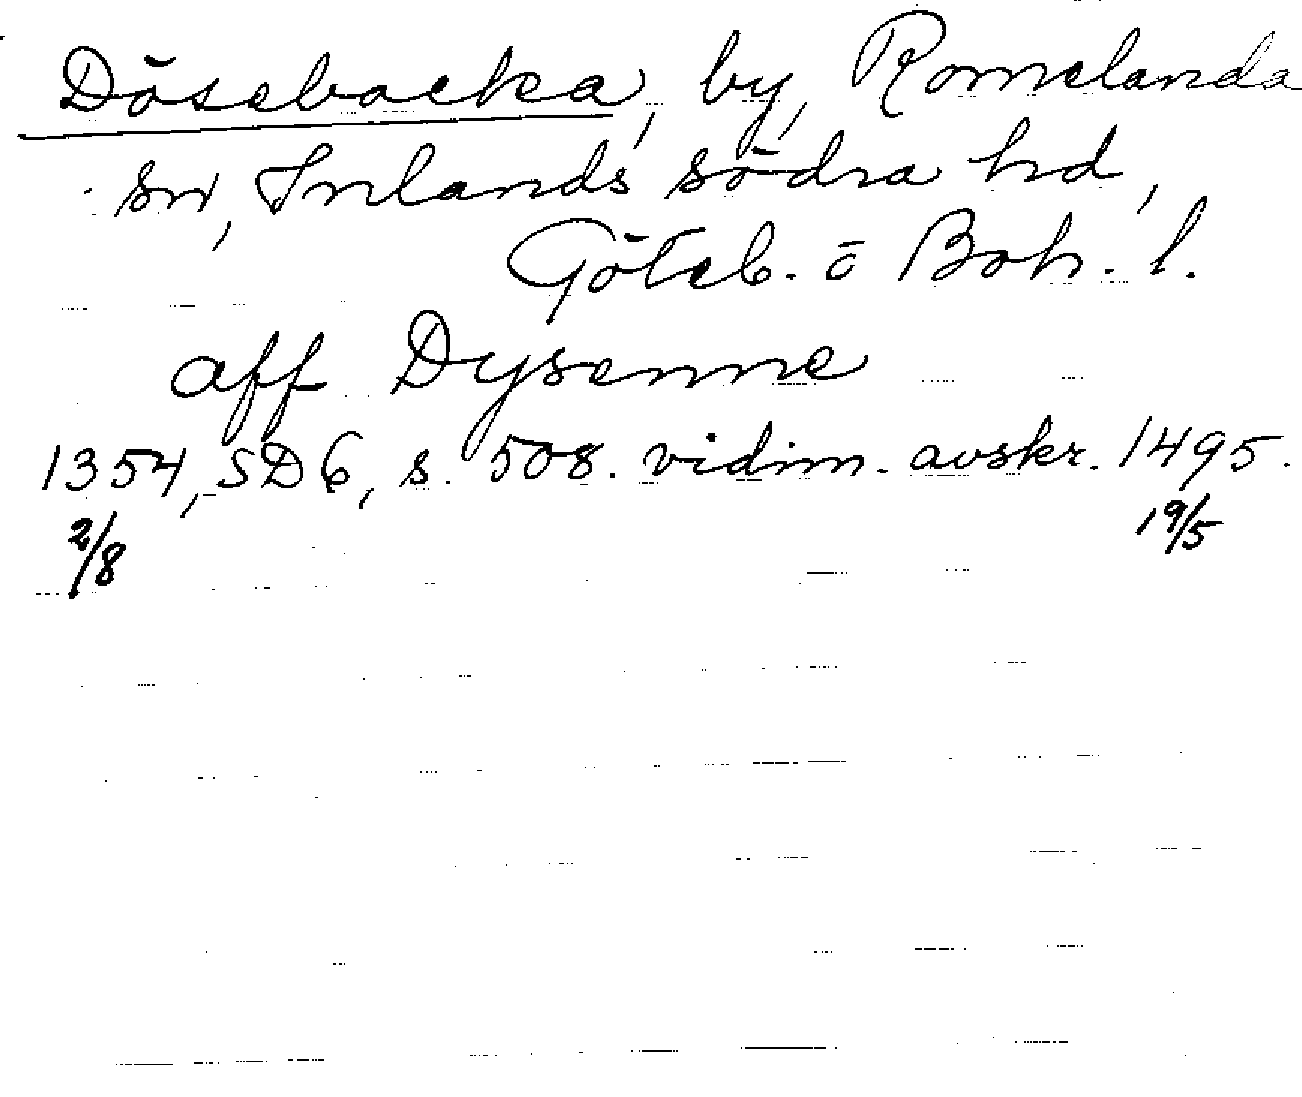 Dösebacka, by, Romelanda
sn, Inlands södra hd,
Göteb. o Boh. l.
aff Dysenne
1354, SD 6, s. 508. vidim. avskr. 1495.
2/8 19/5